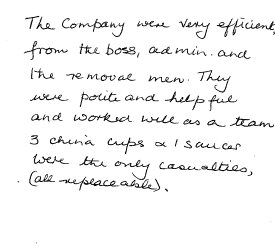 The Company were very efficient,
from the boss, admin. and
the removal men. They
were polite and helpful
and worked well as a team
3 china cups & 1 saucer
were the only casualties,
(all replaceable).